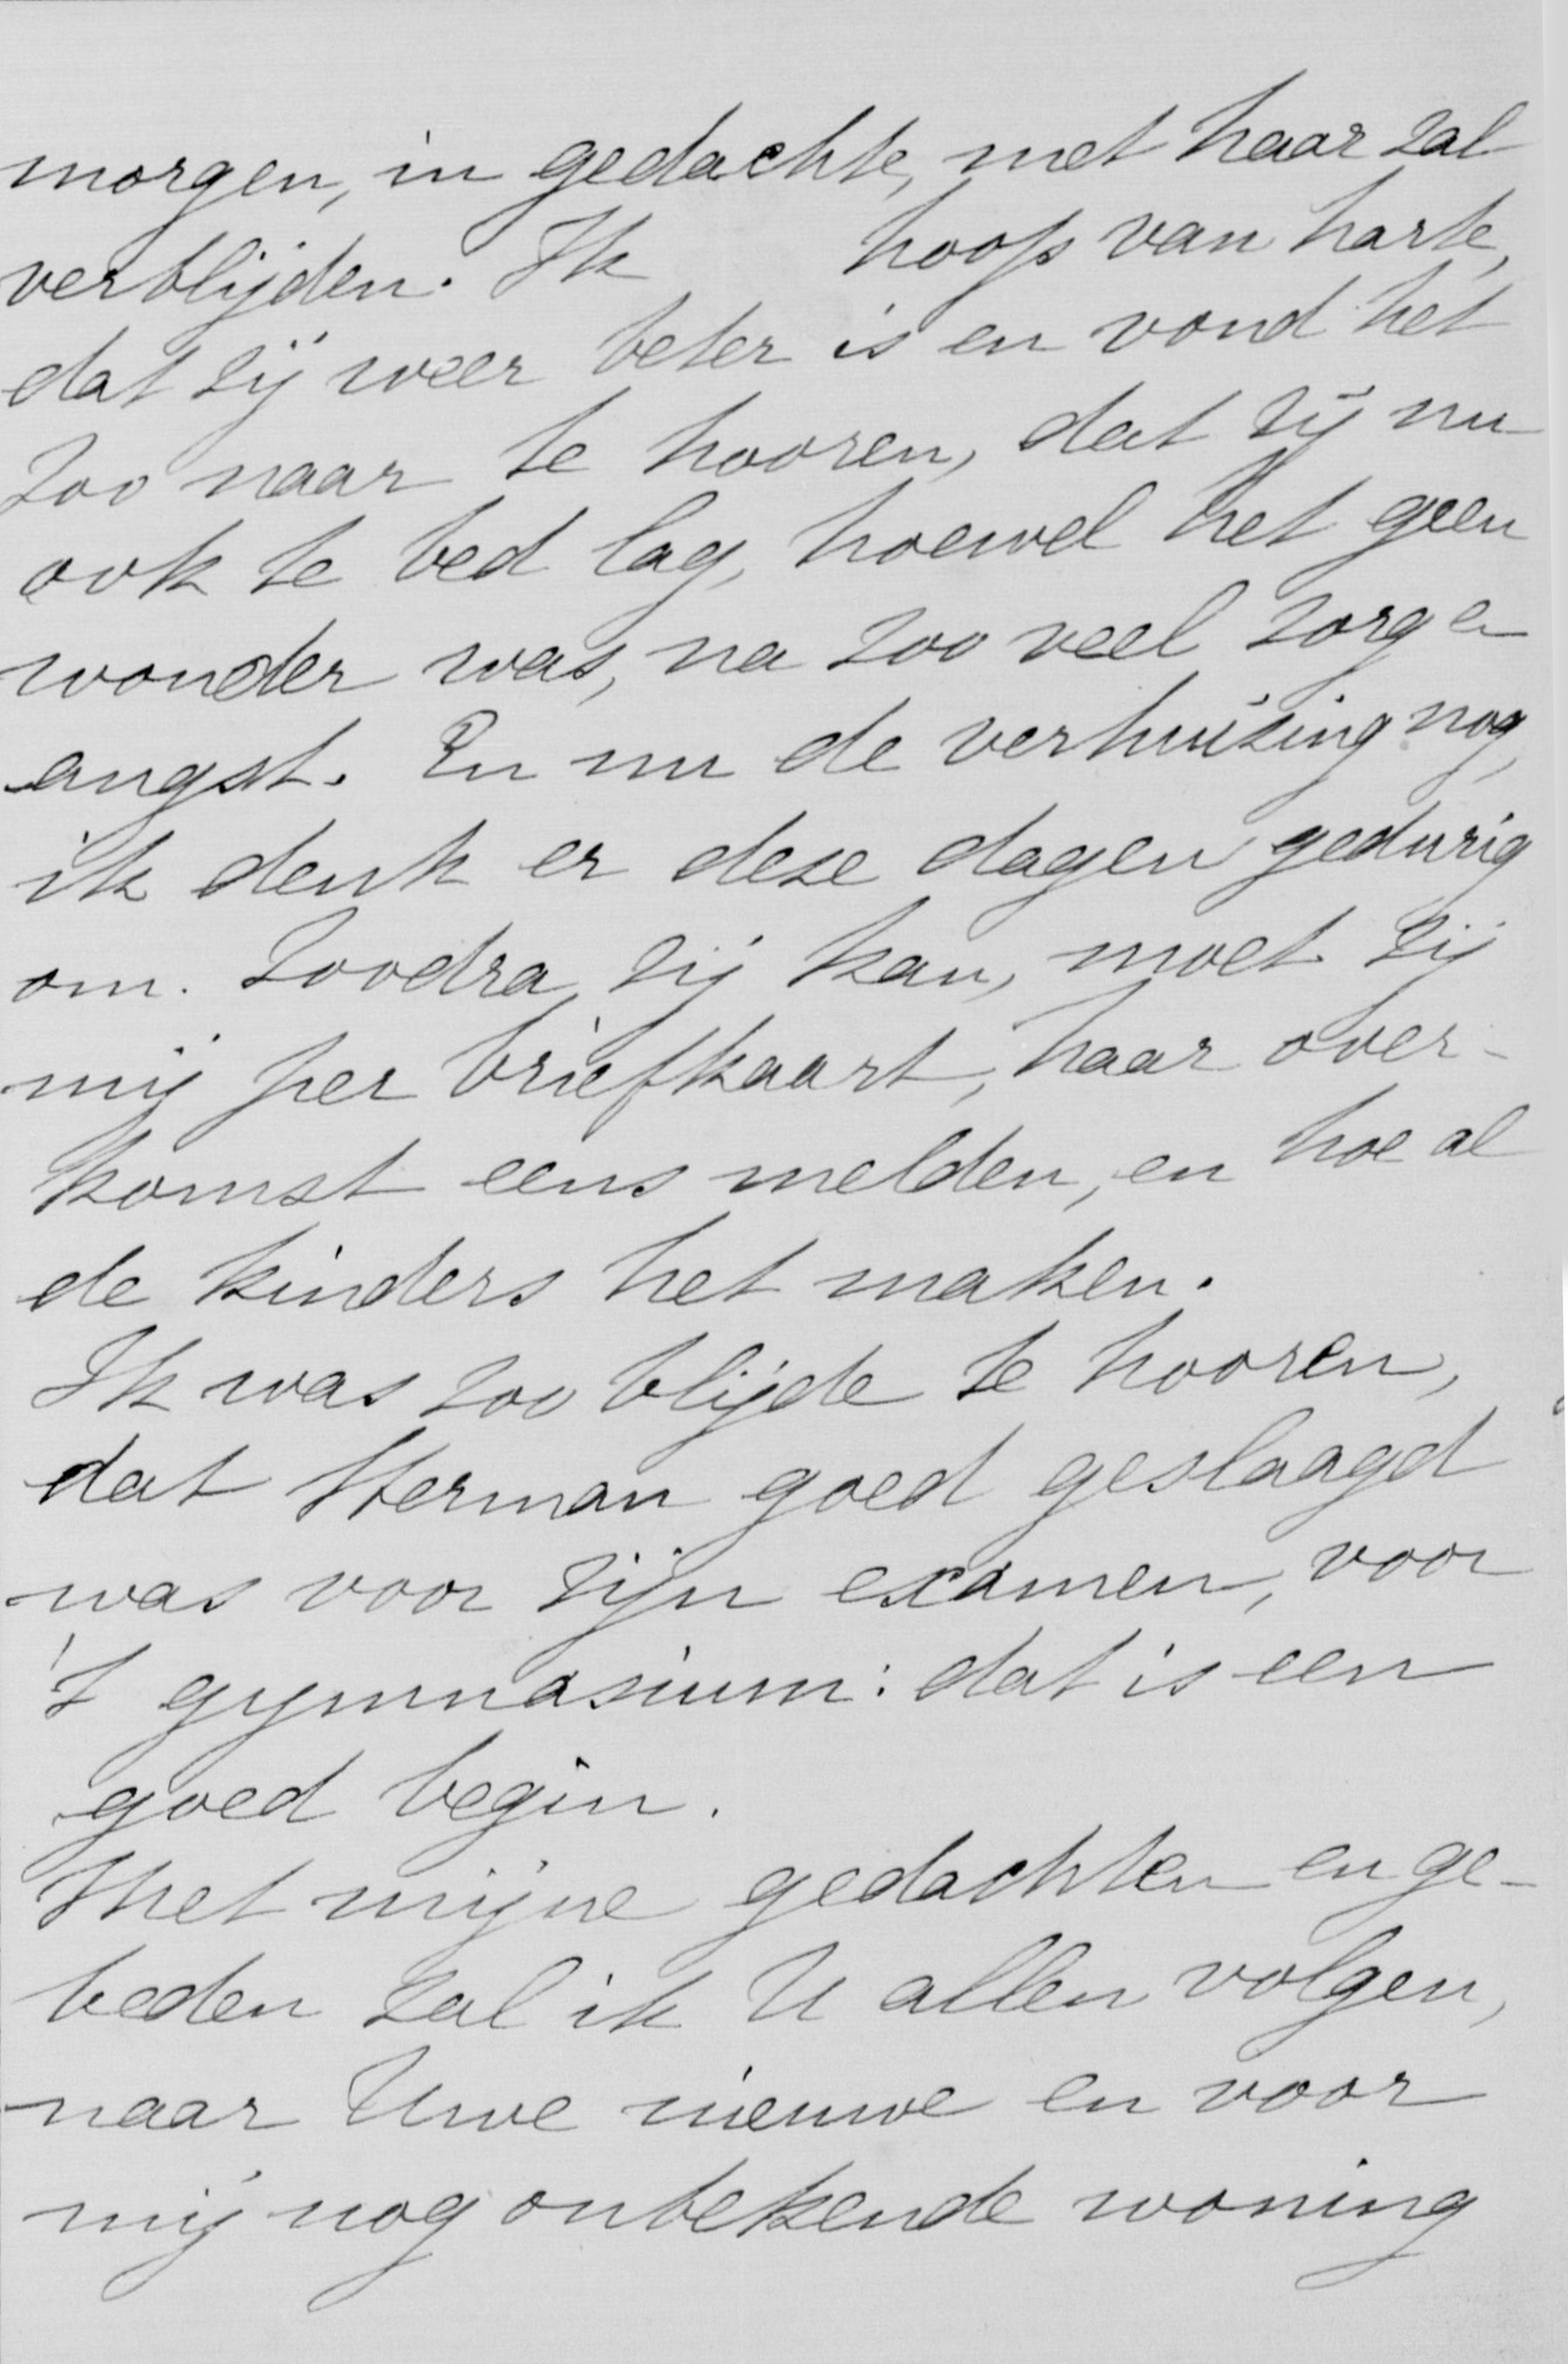 morgen, in gedachte, met haar zal
verblijden. Ik hoop van harte,
dat zij weer beter is en vond het
zoo naar te hooren, dat zij nu
ook te bed lag, hoewel het geen
wonder was, na zoo veel zorg en
angst. En nu de verhuizing nog,
ik denk er deze dagen gedurig
om. Zoodra zij kan, moet zij
mij per briefkaart, haar over-
komst eens melden, en hoe al
de kinders het maken.
Ik was zoo blijde te hooren,
dat Herman goed geslaagd
was voor zijn examen, voor
't gymnasium: dat is een
goed begin.
Met mijne gedachten en ge-
beden zal ik U allen volgen,
naar Uwe nieuwe en voor
mij nog onbekende woning